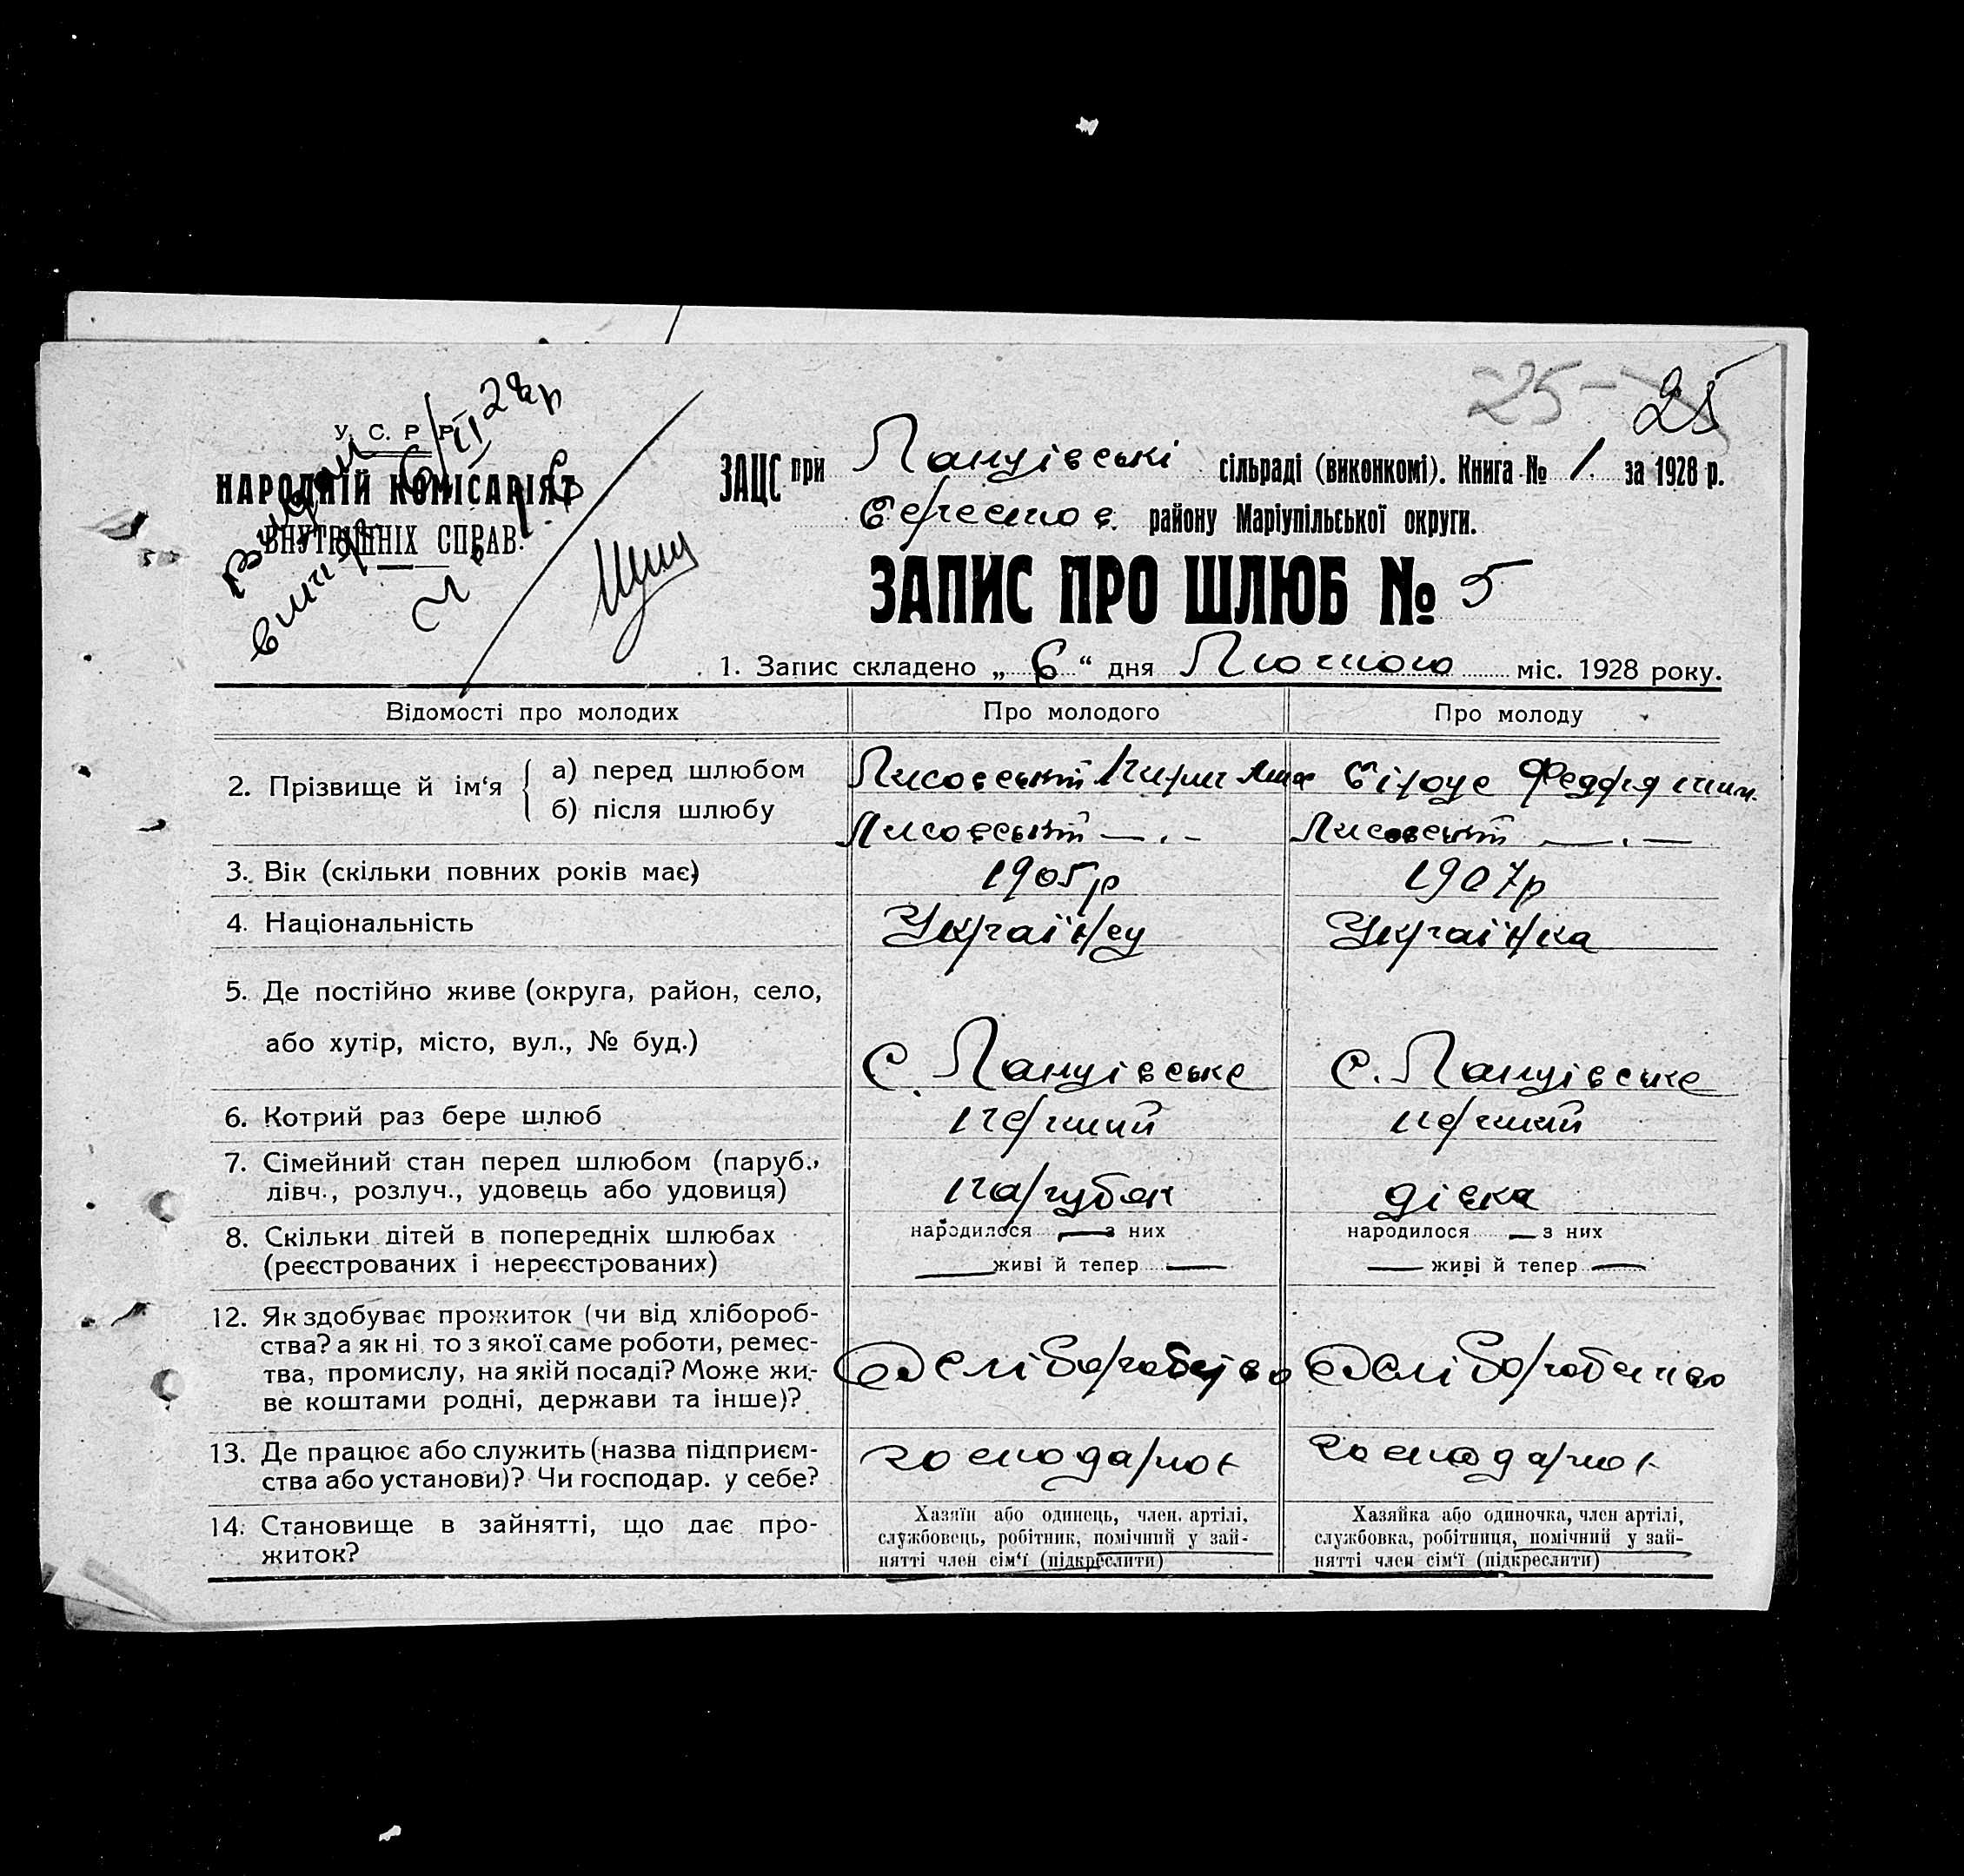 -25-
25
У. С. Р. Р.
НАРОДНІЙ КОМІСАРІЯТ
ВНУТРІШНІХ СПРАВ.
6/II 28р
ЗАЦС при Ланцівські сільраді (виконкомі). Книга № 1. за 1928 р.
Берестов. району Маріупільської округи.
ЗАПИС ПРО ШЛЮБ № 5
1. Запис складено „ 6 “ дня Лютого міс. 1928 року.
Відомості про молодих
Про молодого
Про молоду
2. Прізвище й ім‘я
а) перед шлюбом
Лисовський Кирил
Білоус
б) після шлюбу
Лисовський — . —
Лисовський — . —
3. Вік (скільки повних років має)
1905р
1907р
4. Національність
Українец
Українка
5. Де постійно живе (округа, район, село,
або хутір, місто, вул., № буд.)
С. Ланцівське
С. Ланцівське
6. Котрий раз бере шлюб
перший
перший
7. Сімейний стан перед шлюбом (паруб.,
дівч., розлуч., удовець або удовиця)
парубок
дівка
8. Скільки дітей в попередніх шлюбах
(реєстрованих і нереєстрованих)
народилося — з них
— живі й тепер —
народилося — з них
— живі й тепер —
12. Як здобуває прожиток (чи від хлібороб-
ства? а як ні то з якої саме роботи, ремес-
тва, промислу, на якій посаді? Може жи-
ве коштами родні, держави та інше)?
13. Де працює або служить (назва підприєм-
ства або установи)? Чи господар. у себе?
господарює
господарює
14. Становище в зайнятті, що дає про-
житок?
Хазяїн або одинець, член. артілі,
службовець, робітник, помічний у зай-
нятті член сім‘ї (підкреслити)
Хазяйка або одиночка, член артілі,
службовка, робітниця, помічний у зай-
нятті член сім‘ї (підкреслити)